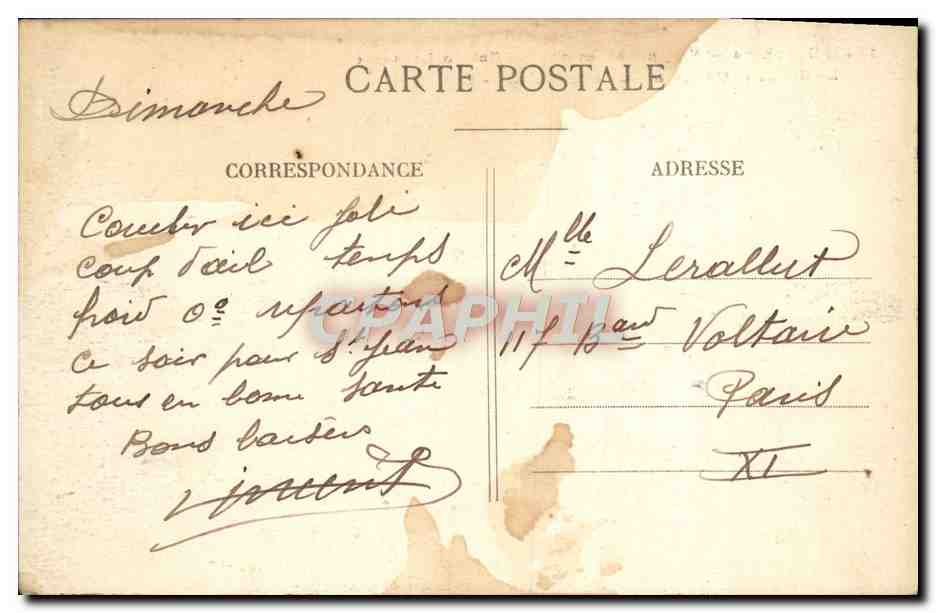 CARTE POSTALE
Dimanche
CORRESPONDANCE
ici Joli
coup d'oeil temps
froid 0° repartons
ce soir pour St Jean
tous en bonne sante
Bons baisers
Vincent
ADRESSE
Mlle Lerallut
117 Bard Voltaire
Paris
XI
CPAPHIL